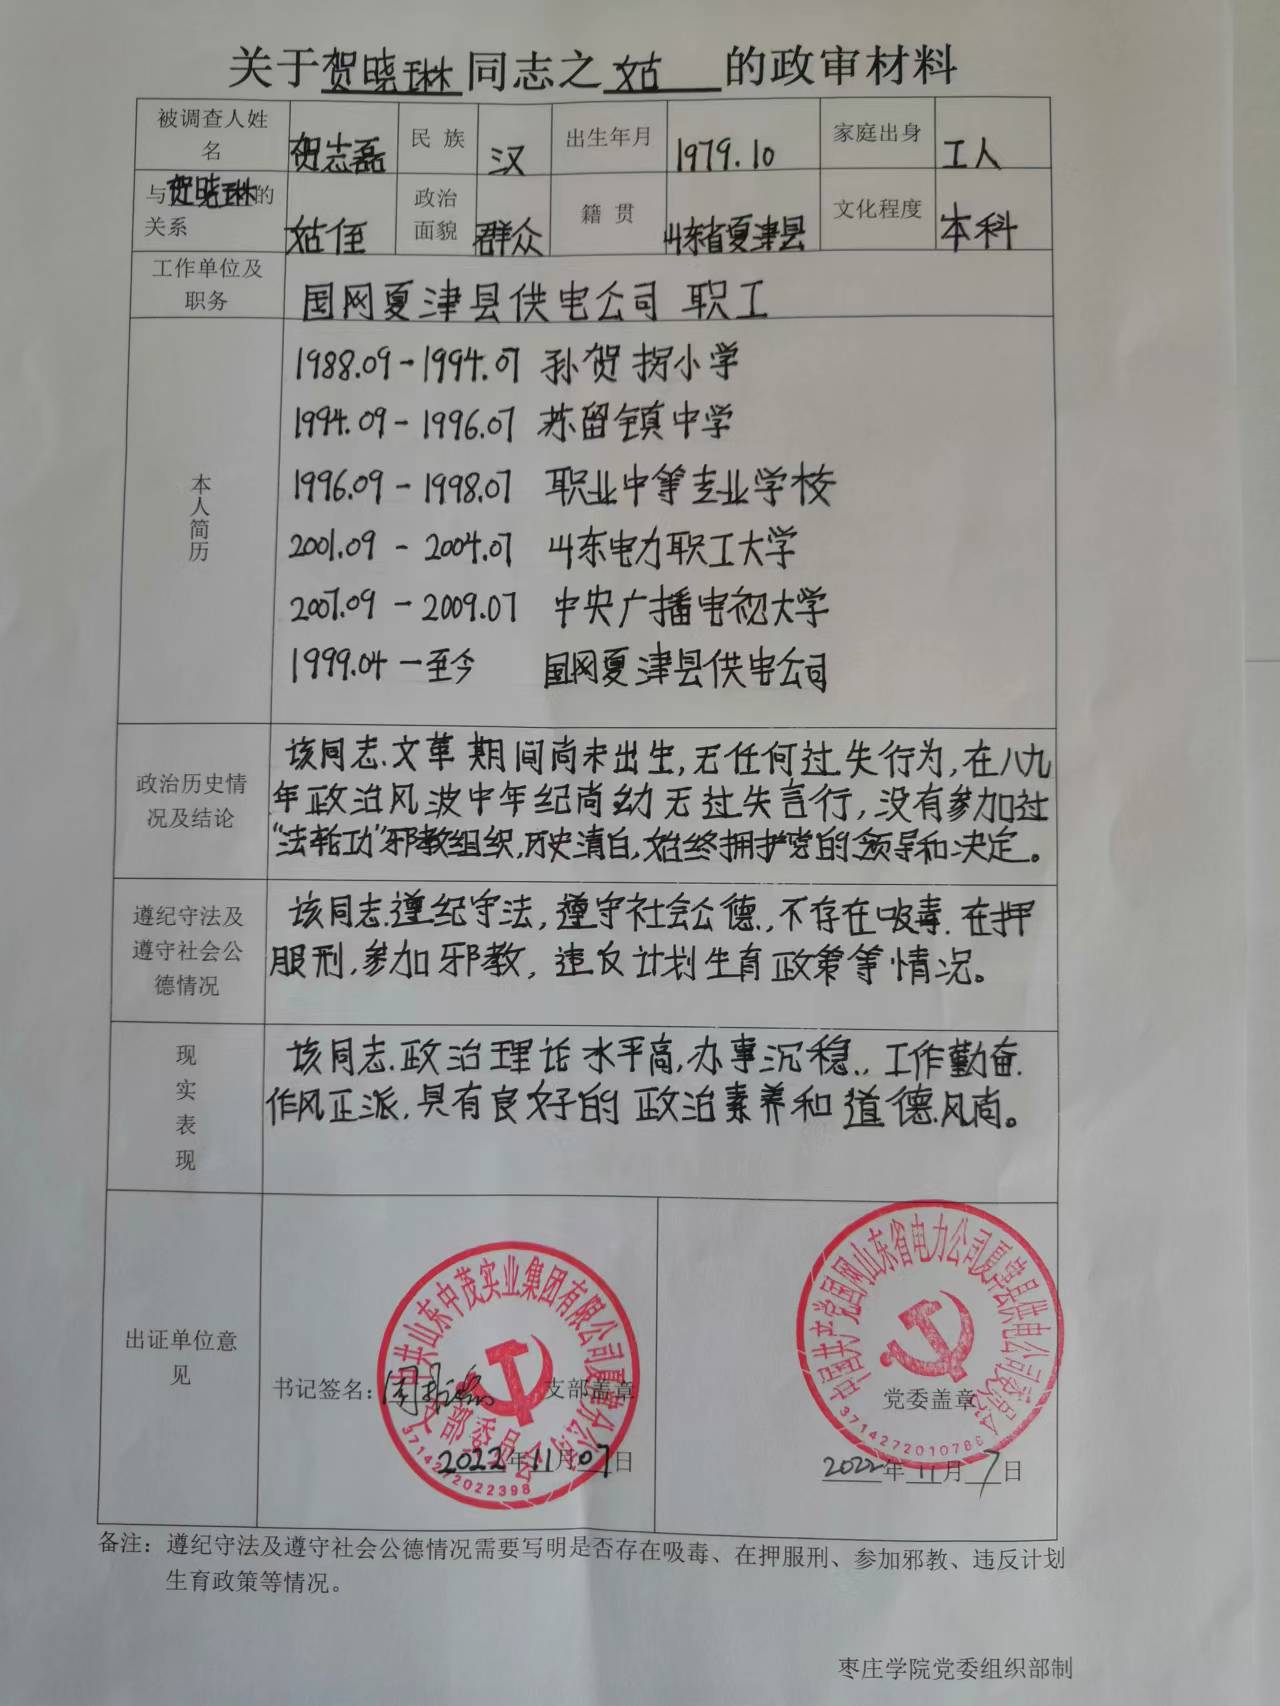 关于贺晓琳同志之姑 的政审材料
被调查人姓名 贺志磊 民族 汉 出生年月 1979.10 家庭出身 工人
与贺晓琳的关系 姑侄 政治面貌 群众 籍贯 山东省夏津县 文化程度 本科
工作单位及职务 国网夏津县供电公司 职工
本人简历
1988.09-1994.07 孙贺拐小学
1994.09-1996.07 苏留镇中学
1996.09-1998.07 职业中等专业学校
2001.09-2004.07 山东电力职工大学
2007.09-2009.07 中央广播电视大学
1999.04-至今 国网夏津县供电公司
政治历史情况及结论
该同志文革期间尚未出生,无任何过失行为,在八九
年政治风波中年纪尚幼无过失言行,没有参加过
"法轮功"邪教组织,历史清白,始终拥护党的领导和决定。
遵纪守法及遵守社会公德情况
该同志遵纪守法,遵守社会公德,不存在吸毒、在押
服刑,参加邪教,违反计划生育政策等情况。
现实表现
该同志政治理论水平高,办事沉稳,工作勤奋、
作风正派,具有良好的政治素养和道德风尚。
出证单位意见
中共山东中茂实业集团有限公司夏津分公司
支部委员会
3714272022398
书记签名: 支部盖章
2022年11月07日
中国共产党国网山东省电力公司夏津县供电公司委员会
3714272010786
党委盖章
2022年11月7日
备注：遵纪守法及遵守社会公德情况需要写明是否存在吸毒、在押服刑、参加邪教、违反计划
生育政策等情况。
枣庄学院党委组织部制